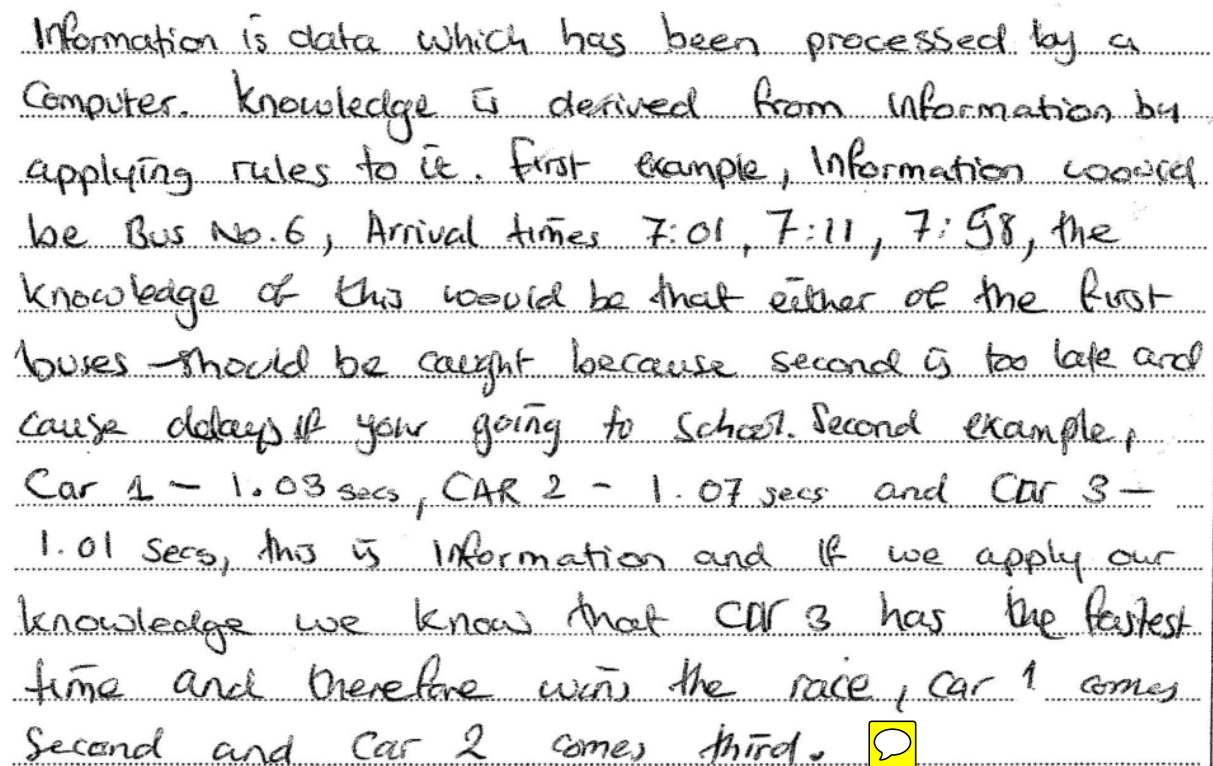 Information is data which has been processed by a
Computer. Knowledge is derived from information by
applying rules to it. First example, Information would
be Bus No.6, Arrival times 7:01, 7:11, 7:58, the
knowledge of this would be that either of the first
buses should be caught because second is too late and
cause delays if your going to School. Second example,
Car 1 - 1.03 secs, CAR 2 - 1.07 secs and Car 3 -
1.01 Secs, this is information and if we apply our
knowledge we know that car 3 has the fastest
time and therefore wins the race, car 1 comes
Second and Car 2 comes third.